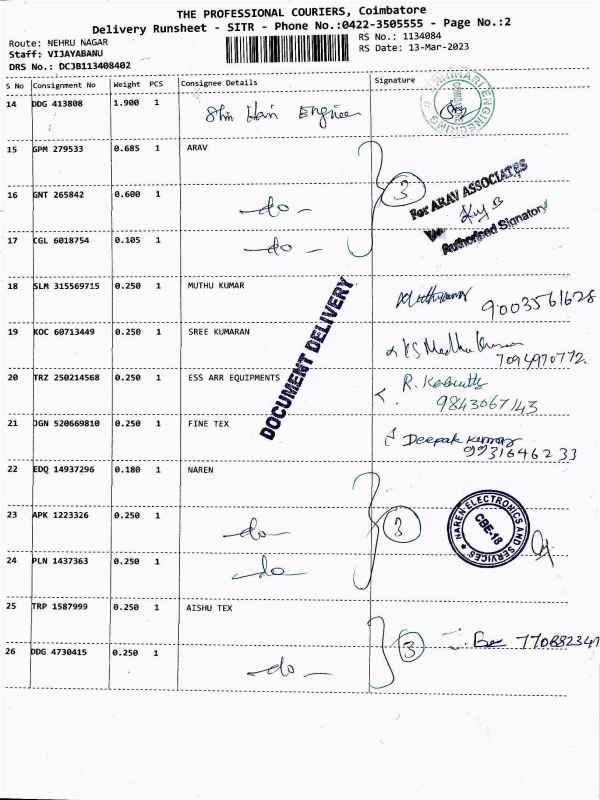 THE PROFESSIONAL COURIERS, Coimbatore
Delivery Runsheet - SITR - Phone No.:0422-3505555 - Page No.:2
Route: NEHRU NAGAR
RS No.: 1134084
Staff: VIJAYABANU
RS Date: 13-Mar-2023
DRS No.: DCJB113408402
S No Consignment No Weight PCS Consignee Details Signature
14 DDG 413808 1.900 1 Shri Hari Enginee
15 GPM 279533 0.685 1 ARAV
3
For ARAV ASSOCIATES
Authorised Signatory
16 GNT 265842 0.600 1 -do-
17 CGL 6018754 0.105 1 -do-
18 SLM 315569715 0.250 1 MUTHU KUMAR 9003561628
DOCUMENT DELIVERY
19 KOC 60713449 0.250 1 SREE KUMARAN
7094970772
20 TRZ 250214568 0.250 1 ESS ARR EQUIPMENTS R.
9843067143
21 JGN 520669810 0.250 1 FINE TEX Deepak kumar
9931646233
22 EDQ 14937296 0.180 1 NAREN
3
NAREN ELECTRONICS AND SERVICES
CBE-18
23 APK 1223326 0.250 1 -do-
24 PLN 1437363 0.250 1 -do-
25 TRP 1587999 0.250 1 AISHU TEX
3
26 DDG 4730415 0.250 1 -do-